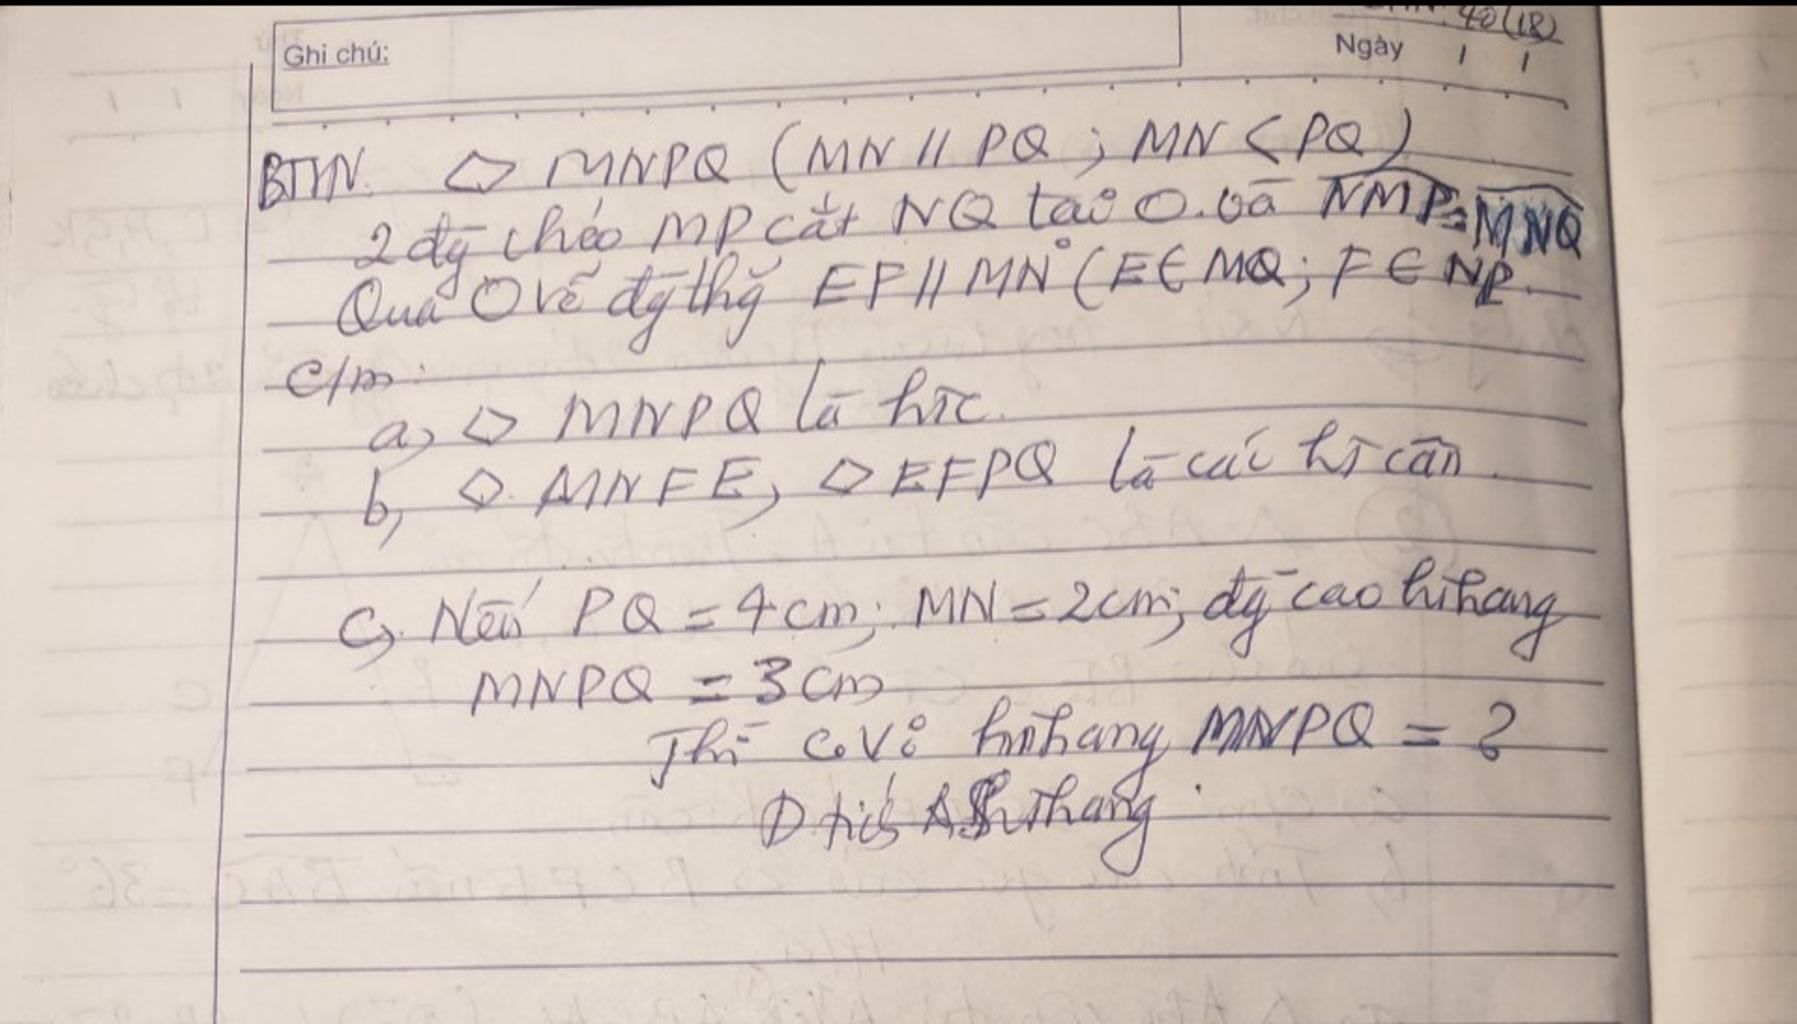 40(18)
Ghi chú:
Ngày / /
BTVN. ▱ MNPQ (MN // PQ ; MN < PQ)
2 đg chéo MP cắt NQ tại O. và NMP = MNQ
Qua O vẽ đg thg EF // MN (E ∈ MQ; F ∈ NP.
C/m:
a, ▱ MNPQ là htc.
b, ▱ MNFE, ▱ EFPQ là các ht cân.
c, Nếu PQ = 4cm; MN = 2cm; đg cao hthang
MNPQ = 3cm
Thì C.Vi hthang MNPQ = ?
D tích hthang